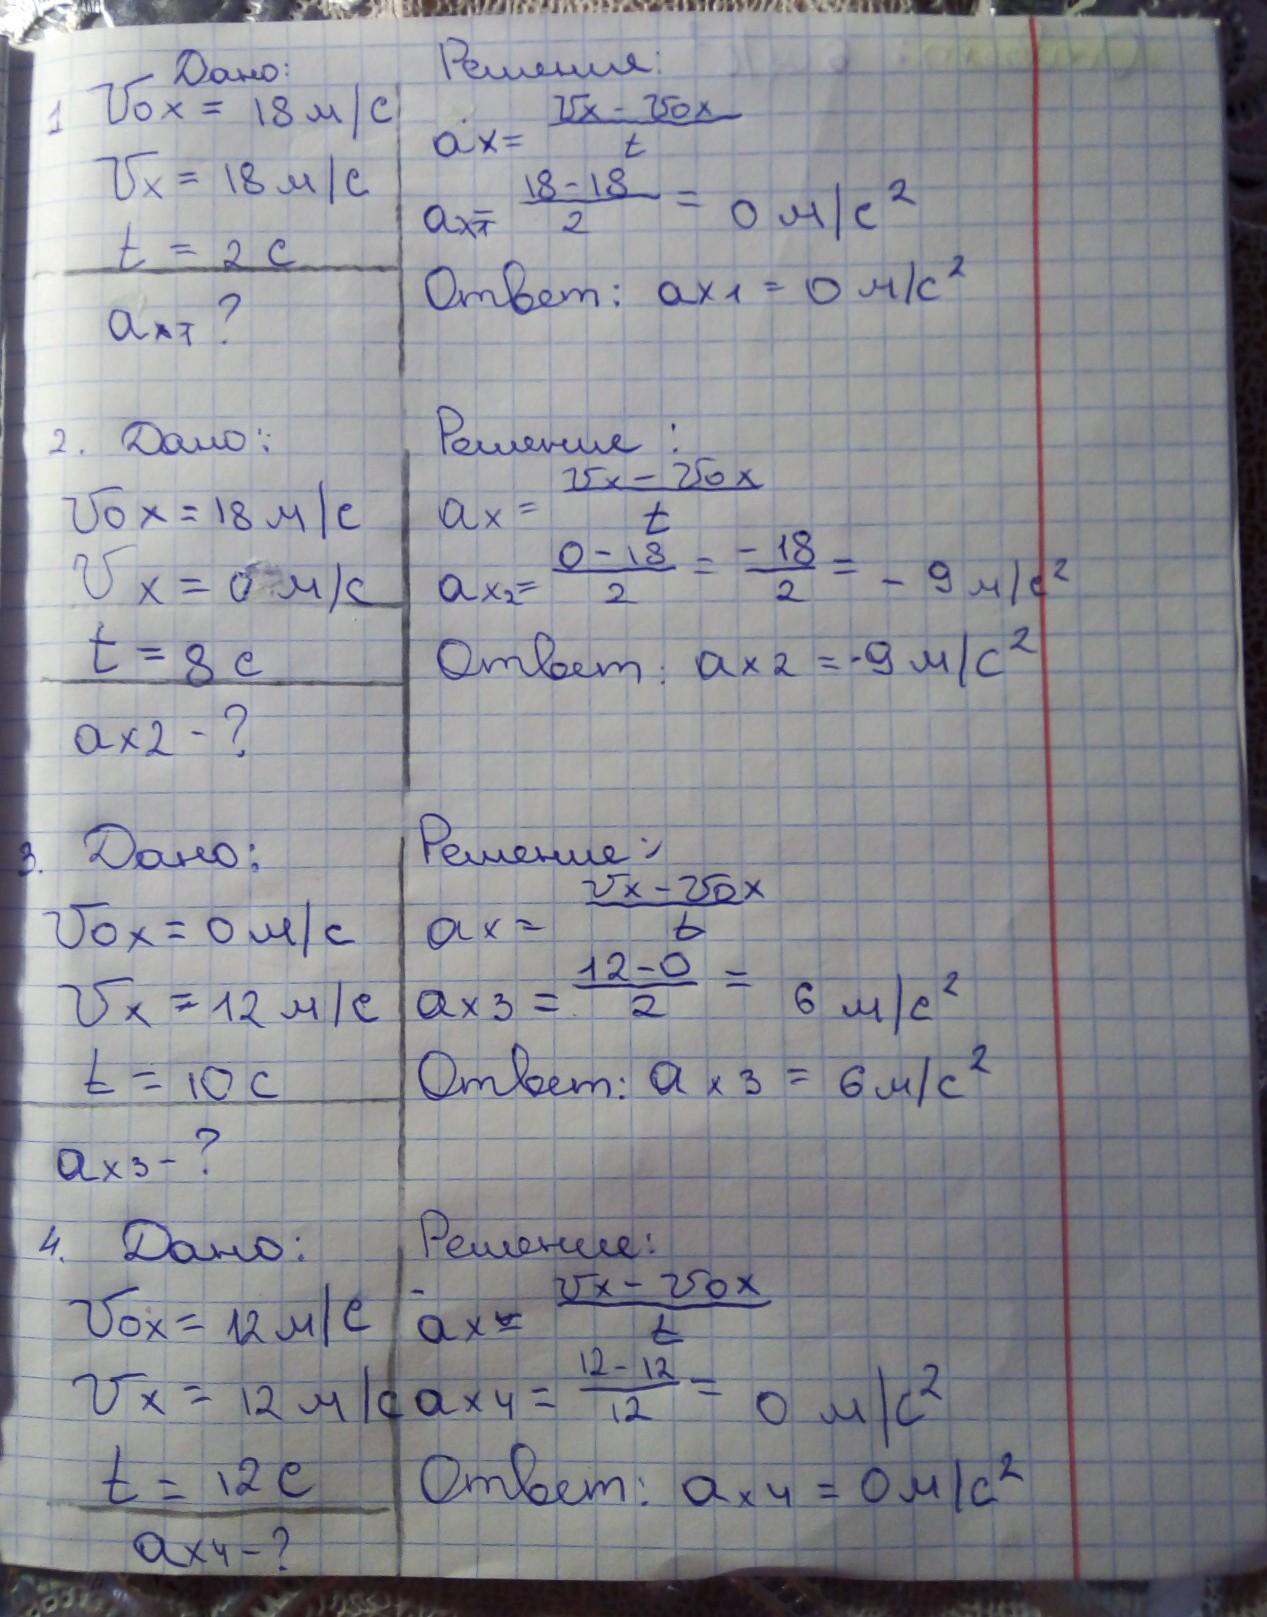 Дано:
1 V0x = 18 м/с
Vx = 18 м/с
t = 2 с
ax1 ?
Решение:
ax = Vx - V0x / t
ax1 = 18 - 18 / 2 = 0 м/с²
Ответ: ax1 = 0 м/с²
2. Дано:
V0x = 18 м/с
Vx = 0 м/с
t = 8 с
ax2 - ?
Решение:
ax = Vx - V0x / t
ax2 = 0 - 18 / 2 = -18 / 2 = - 9 м/с²
Ответ: ax2 = -9 м/с²
3. Дано:
V0x = 0 м/с
Vx = 12 м/с
t = 10 с
ax3 - ?
Решение:
ax = Vx - V0x / t
ax3 = 12 - 0 / 2 = 6 м/с²
Ответ: ax3 = 6 м/с²
4. Дано:
V0x = 12 м/с
Vx = 12 м/с
t = 12 с
ax4 - ?
Решение:
ax = Vx - V0x / t
ax4 = 12 - 12 / 12 = 0 м/с²
Ответ: ax4 = 0 м/с²